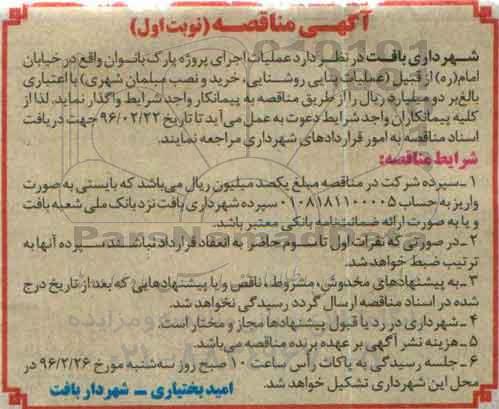 آگهی مناقصه (نوبت اول)
شهرداری بافت در نظر دارد عملیات اجرای پروژه پارک بانوان واقع در خیابان
امام(ره) از قبیل (عملیات بنایی روشنایی، خرید و نصب مبلمان شهری) با اعتباری
بالغ بر دو میلیارد ریال را از طریق مناقصه به پیمانکار واجد شرایط واگذار نماید. لذا از
کلیه پیمانکاران واجد شرایط دعوت به عمل می آید تا تاریخ ۹۶/۰۲/۲۲ جهت دریافت
اسناد مناقصه به امور قراردادهای شهرداری مراجعه نمایند.
شرایط مناقصه:
۱ـ سپرده شرکت در مناقصه مبلغ یکصد میلیون ریال می باشد که بایستی به صورت
واریز به حساب ۰۱۰۸۱۸۱۱۰۰۰۰۵ سپرده شهرداری بافت نزد بانک ملی شعبه بافت
و یا به صورت ارائه ضمانتنامه بانکی معتبر باشد.
۲ـ در صورتی که نفرات اول تا سوم حاضر به انعقاد قرارداد نباشند سپرده آنها به
ترتیب ضبط خواهد شد.
۳ـ به پیشنهادهای مخدوش، مشروط، ناقص و یا پیشنهادهایی که بعد از تاریخ درج
شده در اسناد مناقصه ارسال گردد رسیدگی نخواهد شد.
۴ـ شهرداری در رد یا قبول پیشنهادها مجاز و مختار است.
۵ـ هزینه نشر آگهی بر عهده برنده مناقصه می باشد.
۶ـ جلسه رسیدگی به پاکات رأس ساعت ۱۰ صبح روز سه شنبه مورخ ۹۶/۲/۲۶ در
محل این شهرداری تشکیل خواهد شد.
امید بختیاری ـ شهردار بافت